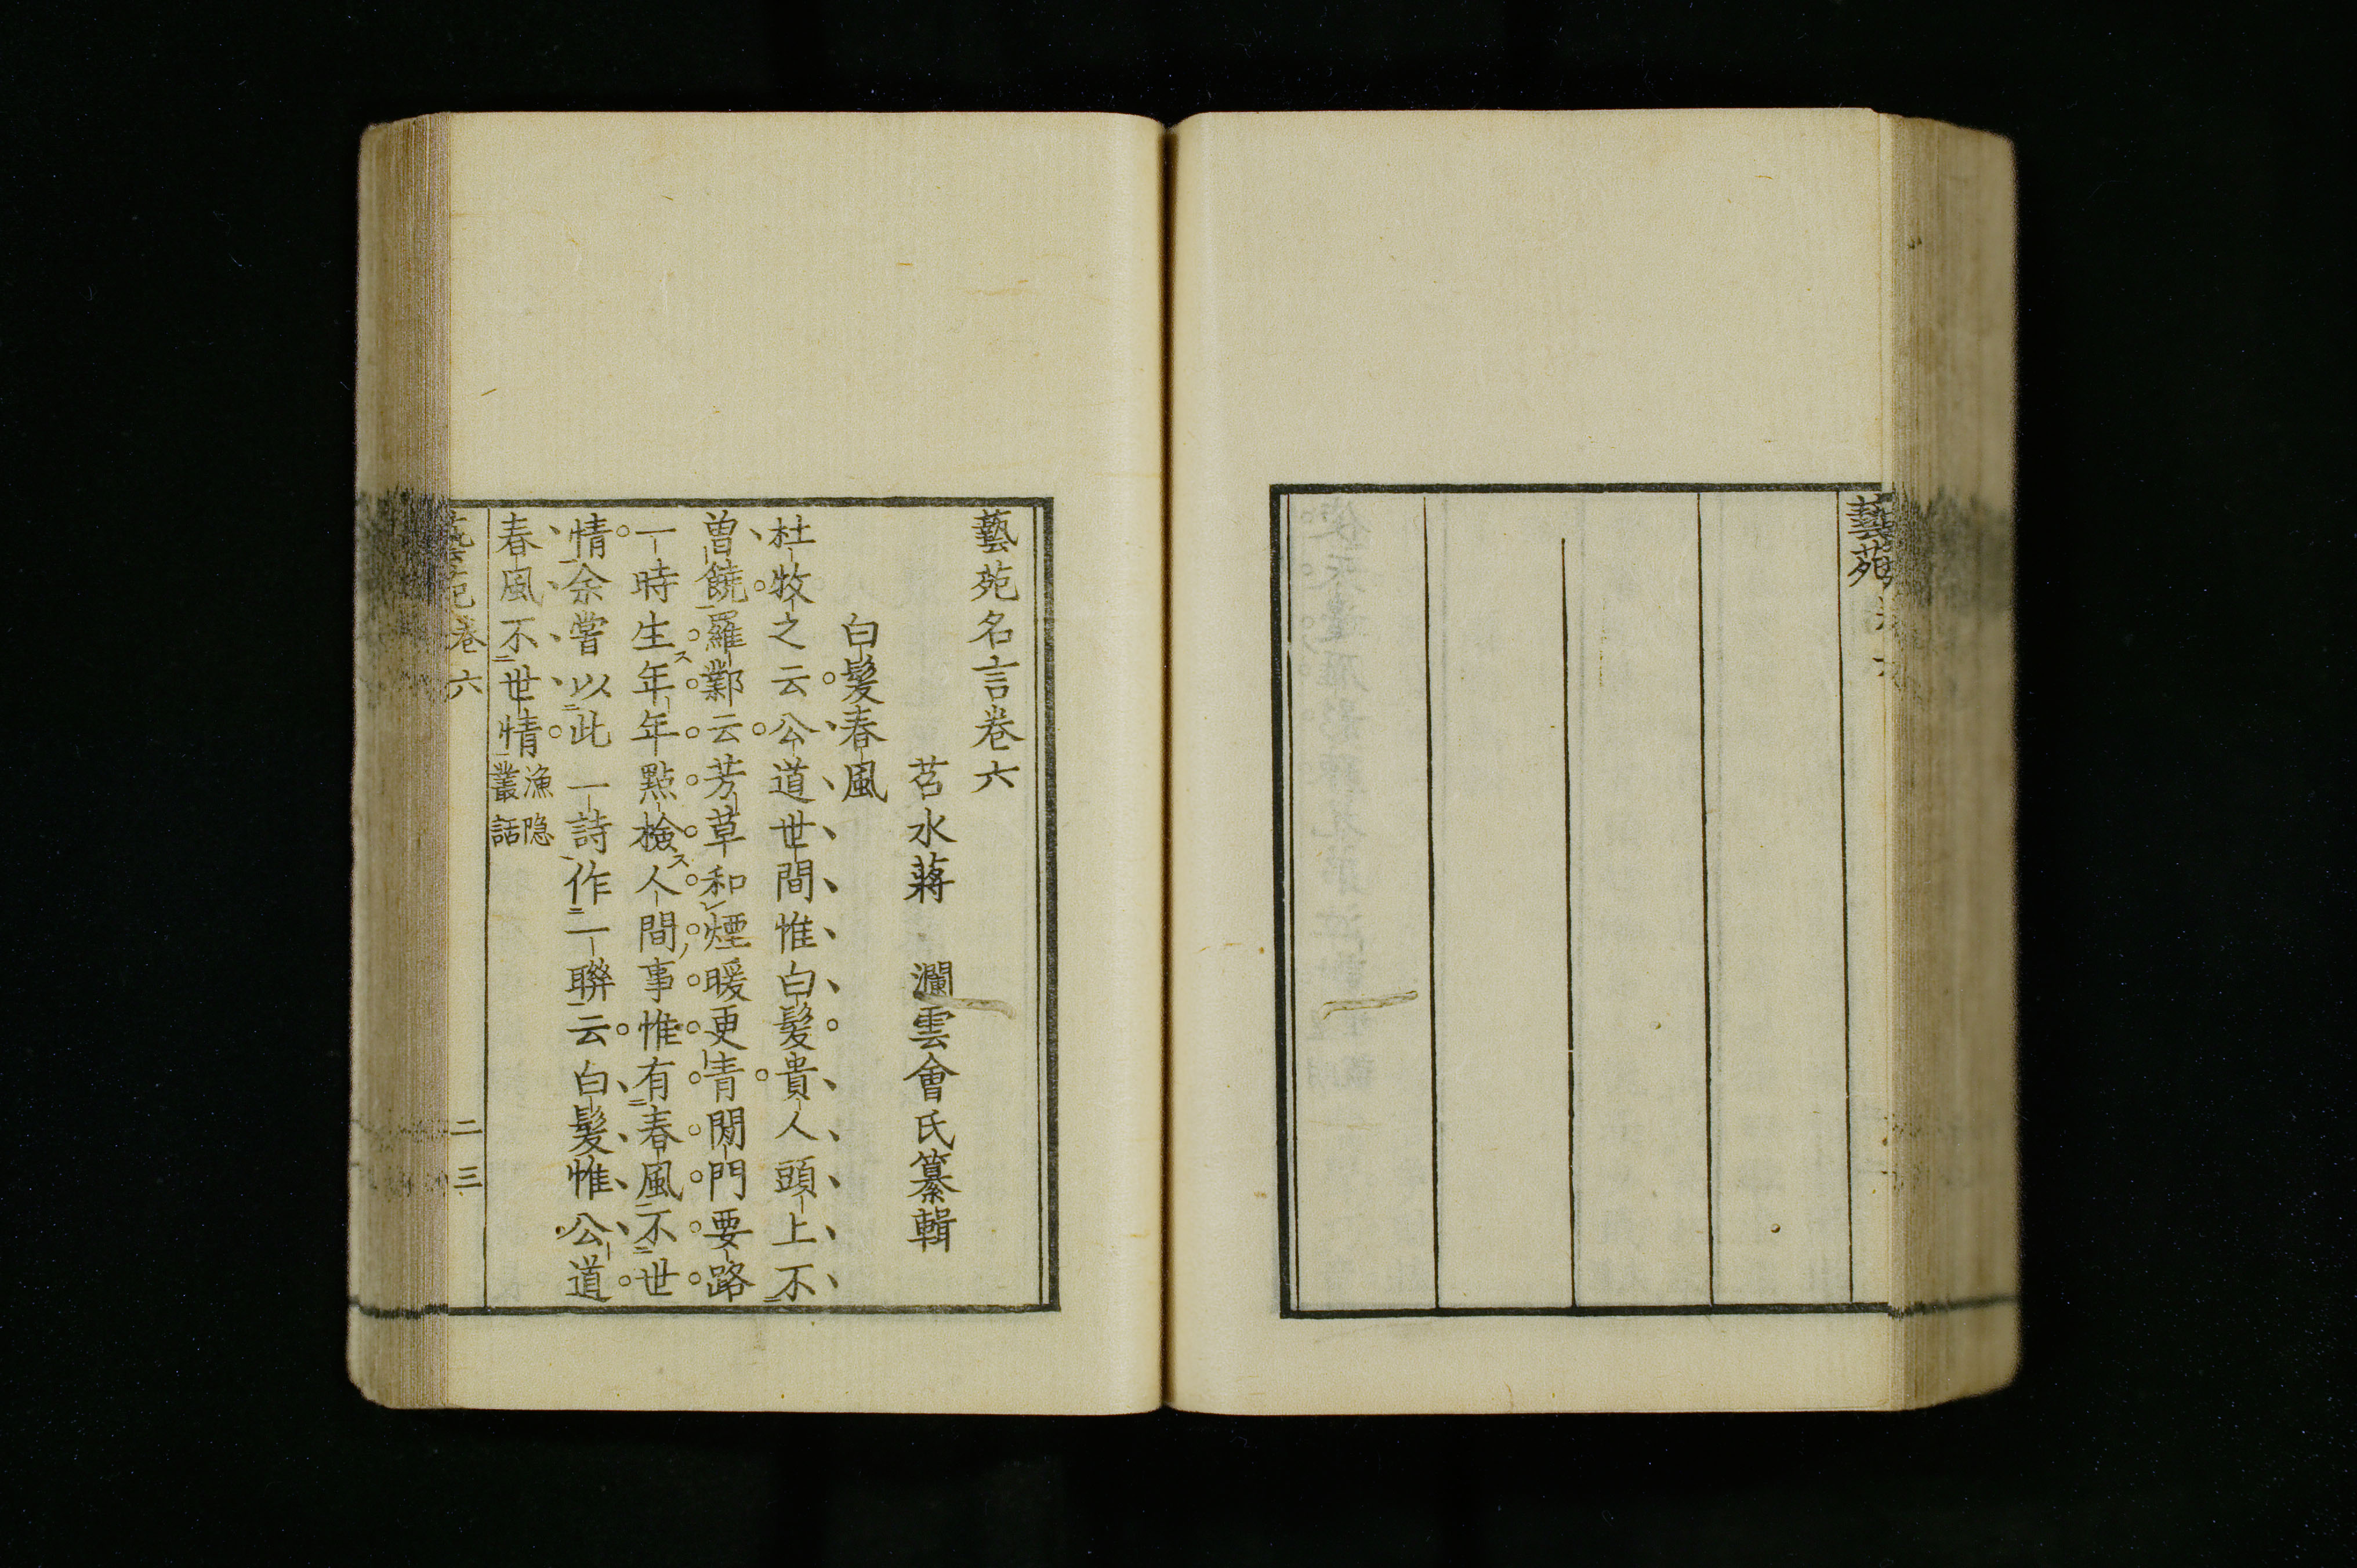 藝苑
藝苑名言卷六
苕水蔣 瀾雲會氏纂輯
白髮春風
杜牧之云公道世間惟白髮貴人頭上不
曽饒羅鄴云芳草和煙暖更青閒門要路
一時生年年點檢人間事惟有春風不世
情余嘗以此一詩作一聯云白髮惟公道
春風不世情漁隠叢話
藝苑卷六 二三